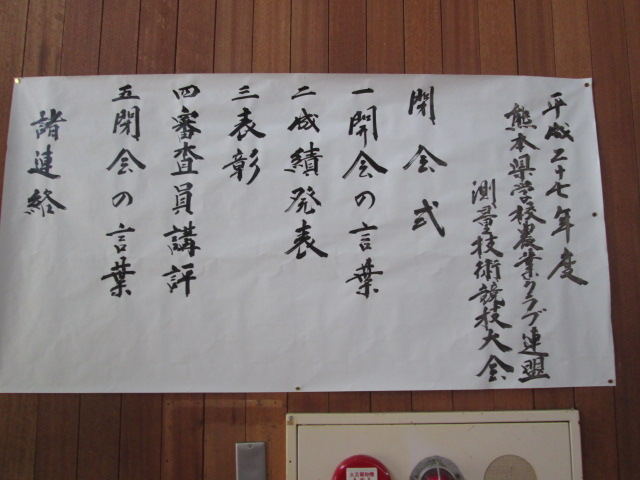 平成二十七年度
熊本県学校農業クラブ連盟
測量技術競技大会
閉会式
一開会の言葉
二成績発表
三表彰
四審査員講評
五閉会の言葉
諸連絡